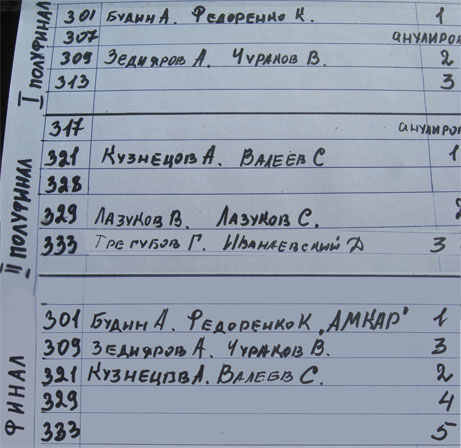 I ПОЛУФИНАЛ
301 БУДИН А. ФЕДОРЕНКО К. 1
307 АНУЛИРОВ
309 ЗЕДИЯРОВ А. ЧУРАКОВ В. 2
313 3
II ПОЛУФИНАЛ
317 АНУЛИРОВ
321 КУЗНЕЦОВ А. ВАЛЕЕВ С 1
328
329 ЛАЗУКОВ В. ЛАЗУКОВ С. 2
333 ТРЕГУБОВ Г. ИВАНАЕВСКИЙ Д 3
ФИНАЛ
301 БУДИН А. ФЕДОРЕНКО К „АМКАР" 1
309 ЗЕДИЯРОВ А. ЧУРАКОВ В. 3
321 КУЗНЕЦОВ А. ВАЛЕЕВ С. 2
329 4
333 5